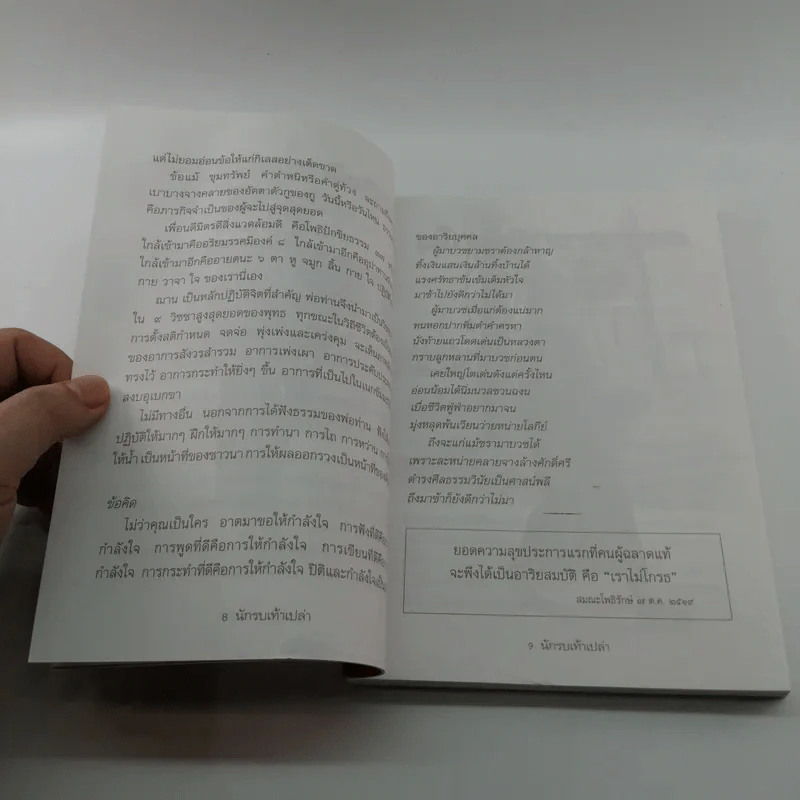 แต่ไม่ยอมอ่อนข้อให้แก่กิเลสอย่างเด็ดขาด
ข้อแม้ ขุมทรัพย์ คำตำหนิหรือคำดูท้วง
เบาบางจางคลายของอัตตาตัวกูของกู วันนี้หรือวันไหน
คือภารกิจจำเป็นของผู้จะไปสู่จุดสุดยอด
เพื่อนดีมิตรดีสิ่งแวดล้อมดี คือโพธิปักขิยธรรม ๓๗
ใกล้เข้ามาคืออริยมรรคมีองค์ ๘ ใกล้เข้ามาอีกคือ
ใกล้เข้ามาอีกคืออายตนะ ๖ ตา หู จมูก ลิ้น กาย ใจ
กาย วาจา ใจ ของเรานี่เอง
ฌาน เป็นหลักปฏิบัติจิตที่สำคัญ พ่อท่านจึงนำมาเป็น
ใน ๙ วิชชาสูงสุดยอดของพุทธ ทุกขณะในวิถีชีวิต
การตั้งสติกำหนด จดจ่อ พุ่งเพ่งและเคร่งคุม จะเห็น
ของอาการสังวรสำรวม อาการเพ่งเผา อาการประคับ
ทรงไว้ อาการกระทำให้ยิ่งๆ ขึ้น อาการที่เป็นไปใน
สงบอุเบกขา
ไม่มีทางอื่น นอกจากการได้ฟังธรรมของพ่อท่าน
ปฏิบัติให้มากๆ ฝึกให้มากๆ การทำนา การไถ การหว่าน
ให้น้ำ เป็นหน้าที่ของชาวนา การให้ผลออกรวงเป็นหน้าที่ของ
ข้อคิด
ไม่ว่าคุณเป็นใคร อาตมาขอให้กำลังใจ การฟังที่ดีคือ
กำลังใจ การพูดที่ดีคือการให้กำลังใจ การเขียนที่ดีคือ
กำลังใจ การกระทำที่ดีคือการให้กำลังใจ ปีติและกำลังใจ
8 นักรบเท้าเปล่า
ของอาริยบุคคล
ผู้มาบวชยามชราต้องกล้าหาญ
ทิ้งเงินแสนเงินล้านทิ้งบ้านได้
แรงศรัทธาขันเข้มเติมหัวใจ
มาช้าไปยังดีกว่าไม่ได้มา
ผู้มาบวชเมื่อแก่ต้องแน่มาก
ทนหอกปากทิ่มตำคำครหา
นั่งท้ายแถวโดดเด่นเป็นหลวงตา
กราบลูกหลานที่มาบวชก่อนตน
เคยใหญ่โตเด่นดังแต่ครั้งไหน
อ่อนน้อมได้นิ่มนวลชวนฉงน
เบื่อชีวิตฟู่ฟ่าอยากมาจน
มุ่งหลุดพ้นเวียนว่ายหน่ายโลกีย์
ถึงจะแก่แม้ชรามาบวชได้
เพราะละหน่ายคลายจางล้างศักดิ์ศรี
ดำรงศีลธรรมวินัยเป็นศาสน์พลี
ถึงมาช้าก็ยังดีกว่าไม่มา
ยอดความสุขประการแรกที่คนผู้ฉลาดแท้
จะพึงได้เป็นอาริยสมบัติ คือ "เราไม่โกรธ"
สมณะโพธิรักษ์ ๗ ต.ค. ๒๕๑๙
9 นักรบเท้าเปล่า